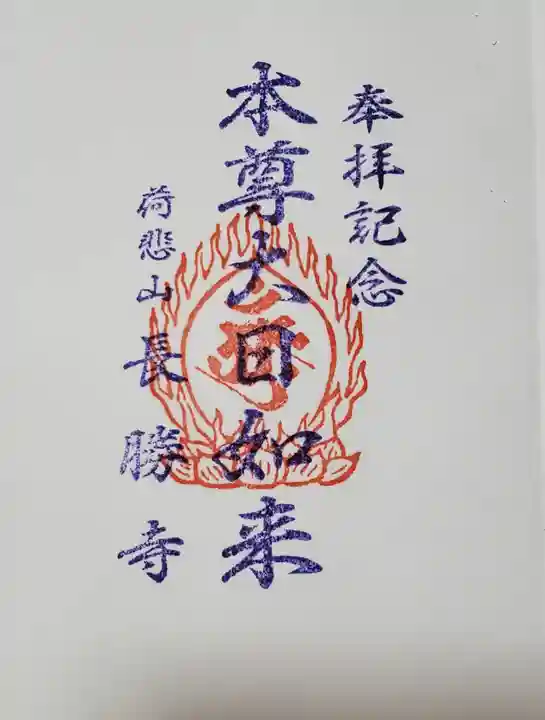 奉拝記念
本尊大日如来
荷悲山 長勝寺